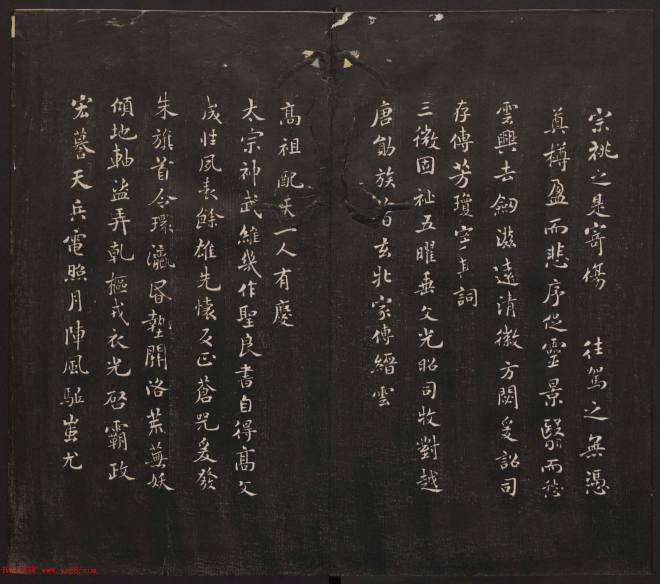 宗祧之是寄傷 往駕之無憑
奠樽盈而悲序促靈景翳而愁
雲興去劒滋遠清徽方閟爰詔司
存傳芳瓊字其詞
三微固祉五曜垂文光昭司牧對越
唐勛族著玄牝家傳縉雲
高祖配天一人有慶
太宗神武維幾作聖良書自得高文
成性夙表餘雄先懷反正蒼兕爰發
朱旗首令環瀛昏墊關洛荒蕪妖
傾地軸盜弄乾樞戎衣光啓霸政
宏謩天兵電照月陣風驅蚩尤
www.yac8.com